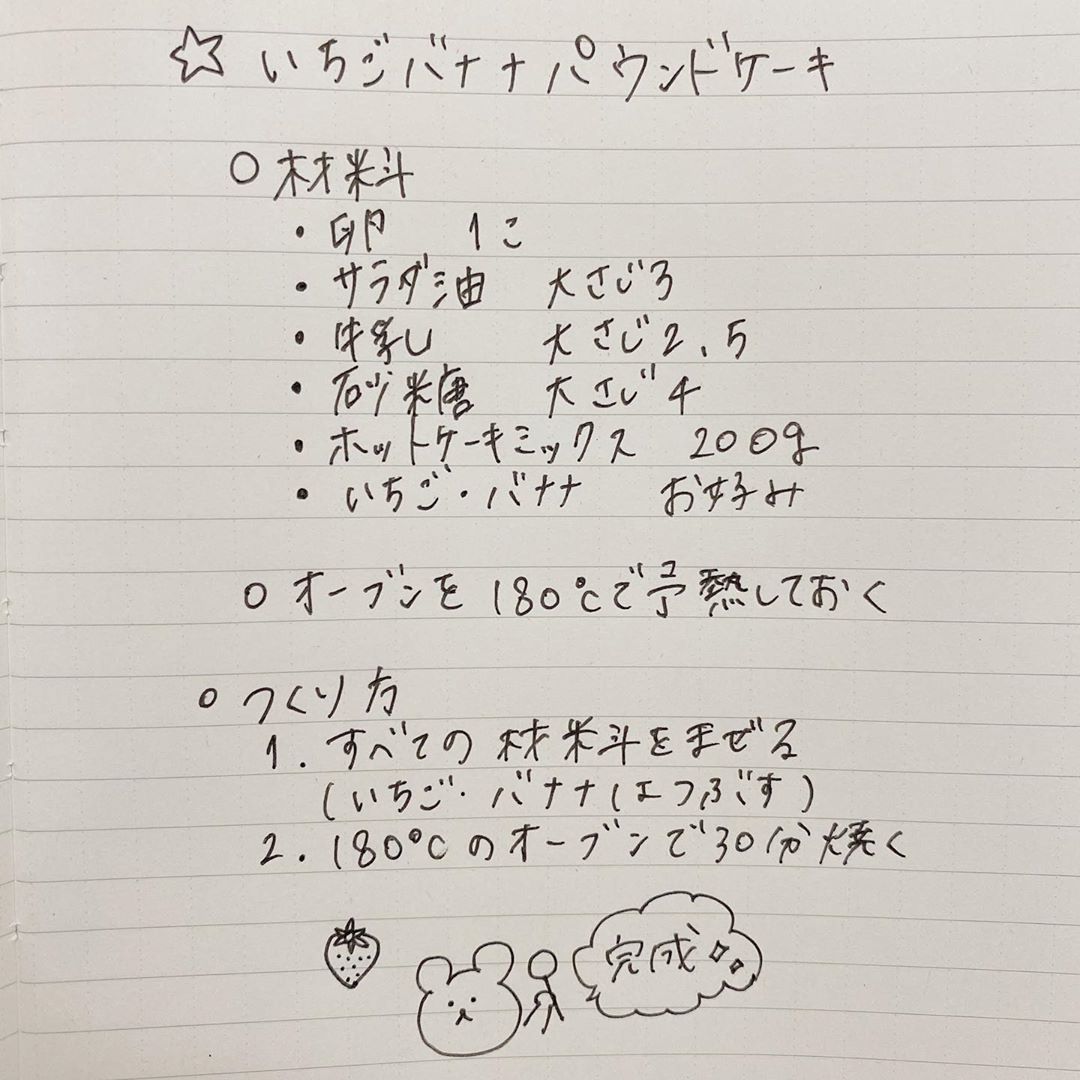 ☆ いちごバナナパウンドケーキ
○ 材料
・卵 1こ
・サラダ油 大さじ3
・牛乳 大さじ2.5
・砂糖 大さじ4
・ホットケーキミックス 200g
・いちご・バナナ お好み
○ オーブンを180℃で予熱しておく
○ つくり方
1. すべての材料をまぜる
(いちご・バナナはつぶす)
2. 180℃のオーブンで30分焼く
完成